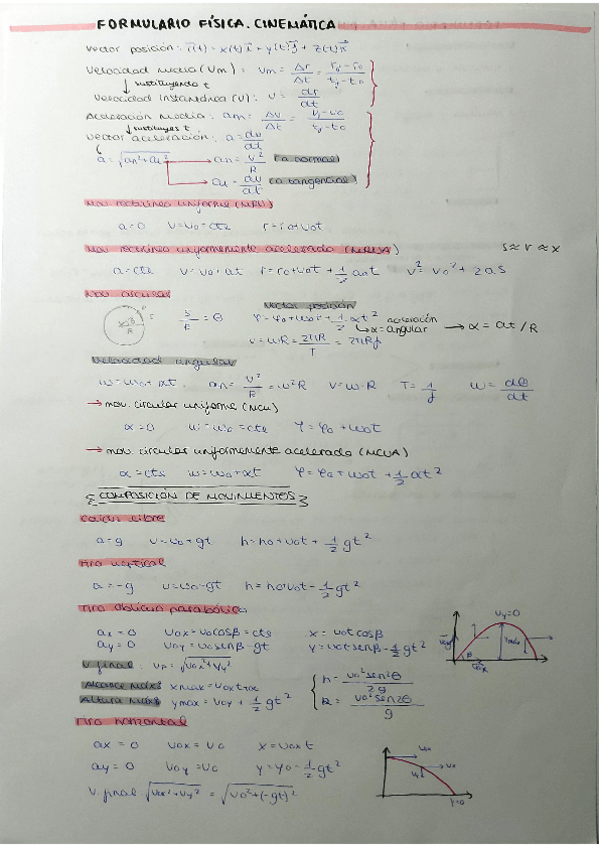 FORMULARIO FÍSICA. CINEMÁTICA
Vector posición: r(t) = x(t)i + y(t)j + z(t)k
Velocidad media (Vm): Vm = Δr/Δt = (rf - r0)/(tf - t0)
↓ sustituyendo t
Velocidad instantánea (v): v = dr/dt
Aceleración media: am = Δv/Δt = (vf - v0)/(tf - t0)
↓ sustituyes t
Vector aceleración: a = dv/dt
a = √(an² + at²) → an = v²/R (a normal)
→ at = dv/dt (a tangencial)
Mov rectilíneo uniforme (MRU)
a = 0 v = v0 = cte r = r0 + v0t
Mov rectilíneo uniformemente acelerado (MRUA) s ≈ r ≈ x
a = cte v = v0 + at r = r0 + v0t + 1/2 at² v² = v0² + 2as
Mov circular
s/R = θ
Vector posición
φ = φ0 + ω0t + 1/2 αt² aceleración
↳ α = angular → α = at/R
v = ω·R = 2πR/T = 2πRf
Velocidad angular
ω = ω0 + αt an = v²/R = ω²R v = ω·R T = 1/f ω = dθ/dt
→ mov. circular uniforme (MCU)
α = 0 ω = ω0 = cte φ = φ0 + ω0t
→ mov. circular uniformemente acelerado (MCUA)
α = cte ω = ω0 + αt φ = φ0 + ω0t + 1/2 αt²
COMPOSICIÓN DE MOVIMIENTOS
Caída libre
a = g v = v0 + gt h = h0 + v0t + 1/2 gt²
Tiro vertical
a = -g v = v0 - gt h = h0 + v0t - 1/2 gt²
Tiro oblicuo parabólico
ax = 0 v0x = v0 cosβ = cte x = v0t cosβ
ay = 0 v0y = v0 senβ - gt y = v0t senβ - 1/2 gt²
vy = 0
V final: VF = √(v0x² + vy²)
Alcance máx: xmax = v0x t
Altura máx: ymax = v0y + 1/2 gt²
h = v0² sen²θ / 2g
R = v0² sen2θ / g
Tiro horizontal
ax = 0 v0x = v0 x = v0x t
ay = 0 v0y = v0 y = y0 - 1/2 gt²
y = 0
V. final √(v0x² + vy²) = √(v0² + (-gt)²)